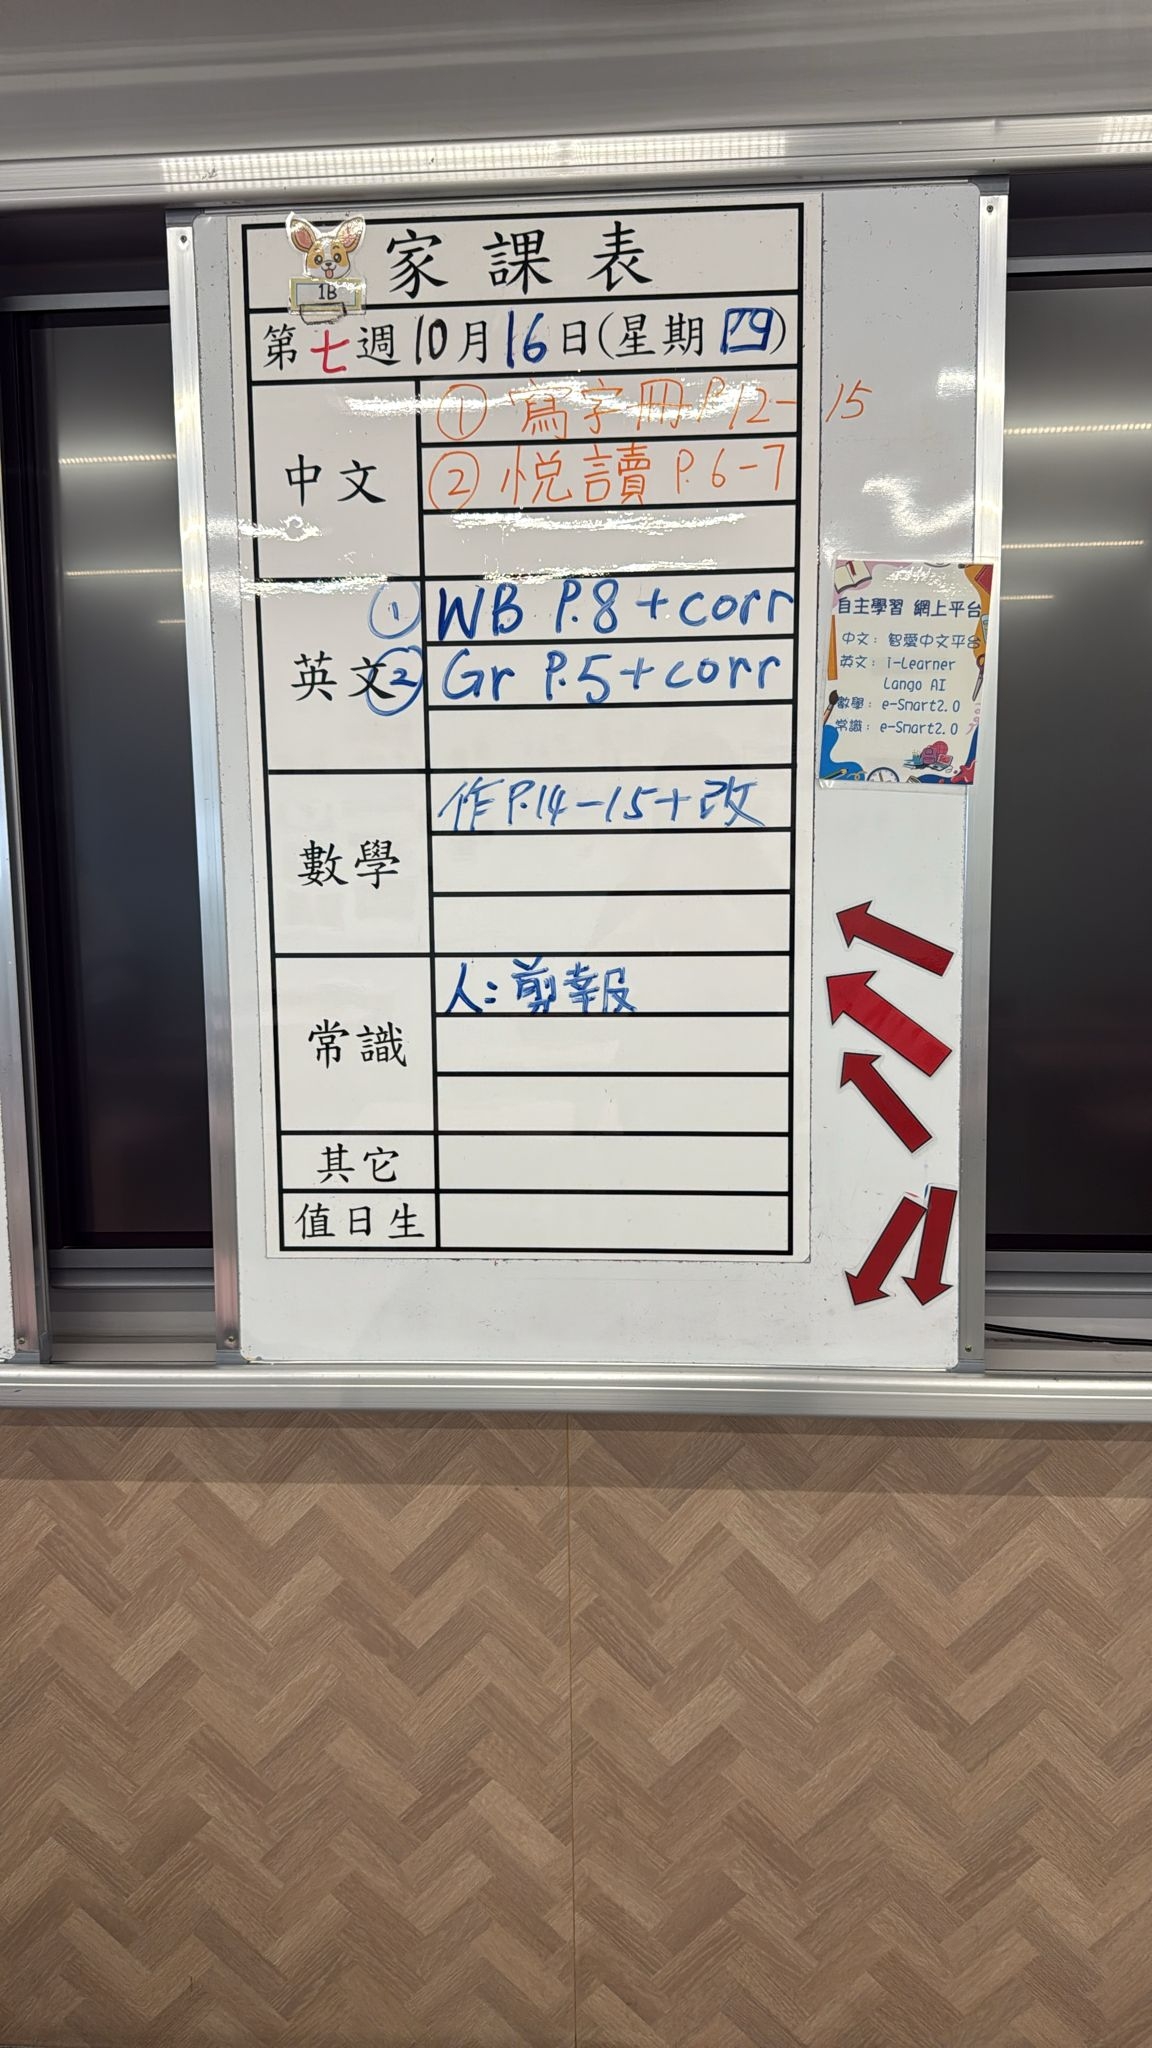 家課表
1B
第七週10月16日(星期四)
中文
① 寫字冊 P.12-15
② 悅讀 P.6-7
英文
① WB P.8 + corr
② Gr P.5 + corr
數學
作 P.14-15+改
常識
人：剪報
其它
值日生
自主學習 網上平台
中文：智愛中文平台
英文：i-Learner
Lango AI
數學：e-Smart2.0
常識：e-Smart2.0